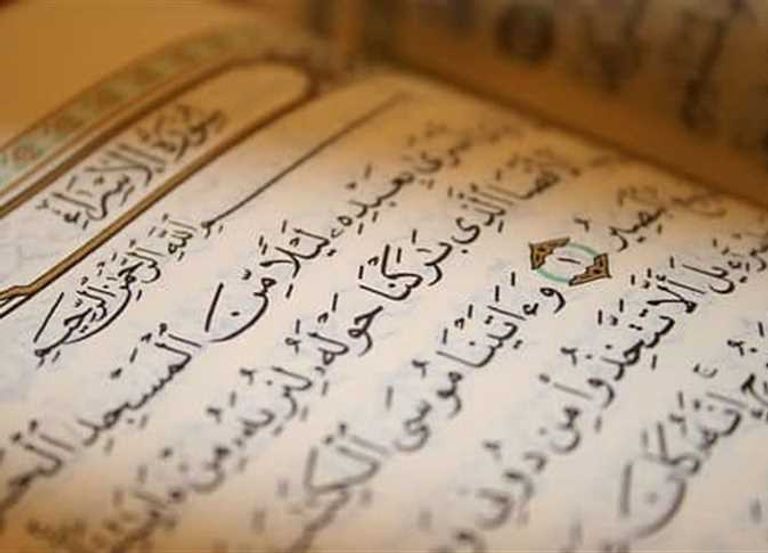 سُورَةُ الإِسْرَاءِ
بِسْمِ ٱللَّهِ ٱلرَّحْمَٰنِ ٱلرَّحِيمِ
أَسْرَىٰ بِعَبْدِهِۦ لَيْلًا مِّنَ ٱلْمَسْجِدِ
ٱلَّذِى بَٰرَكْنَا حَوْلَهُۥ لِنُرِيَهُۥ مِنْ ءَايَٰتِنَا
ٱلْبَصِيرُ ١ وَءَاتَيْنَا مُوسَى ٱلْكِتَٰبَ
أَلَّا تَتَّخِذُوا۟ مِن دُونِى
إِنَّهُۥ كَانَ